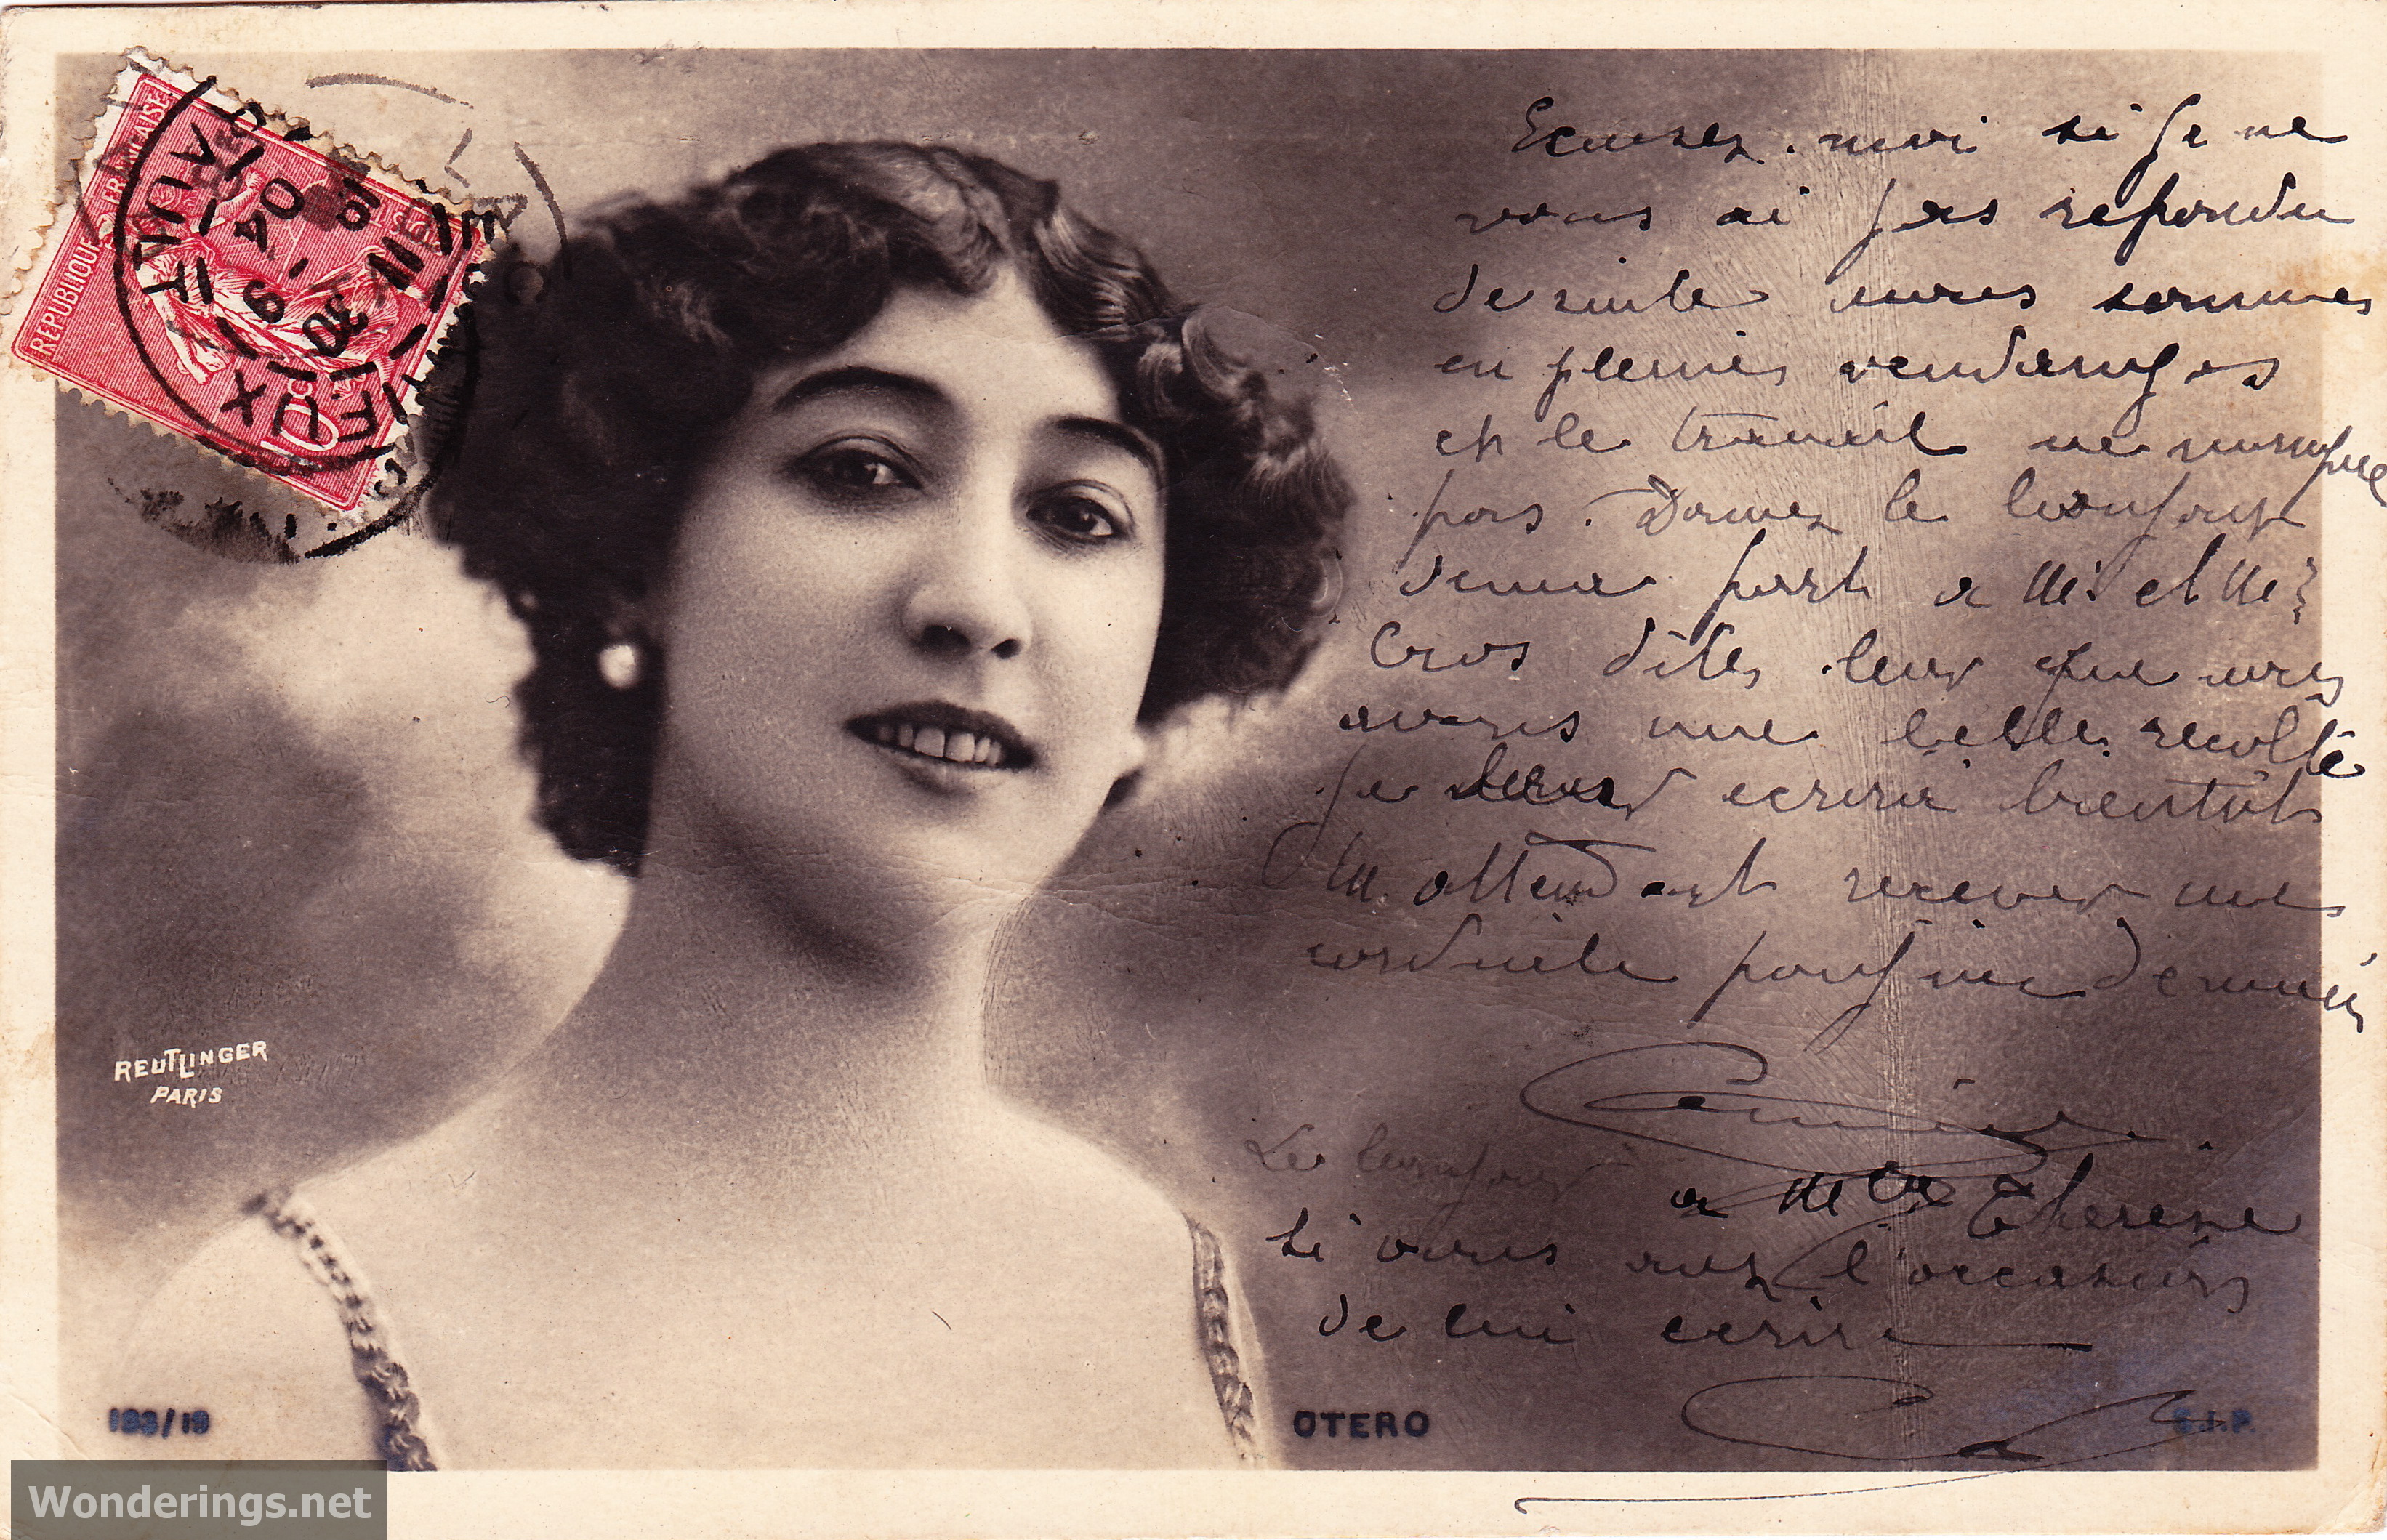 REPUBLIQUE FRANÇAISE
POSTES
10c
VIEUX
HAUT
30
9
04
REUTLINGER
PARIS
193/19
OTERO
S.I.P.
Excusez-moi si je ne
vous ai pas repondu
de suite nous sommes
en pleines vendanges
et le travail ne manque
pas. Donnez le bonjour
de ma part a Mr et Me
Cros dites leur que nous
avons une belle recolte
je leur ecrirai bientôt
En attendant recevez une
cordiale poignée de main
Le bonjour a Melle Therese
si vous avez l'occasion
de lui ecrire
Wonderings.net